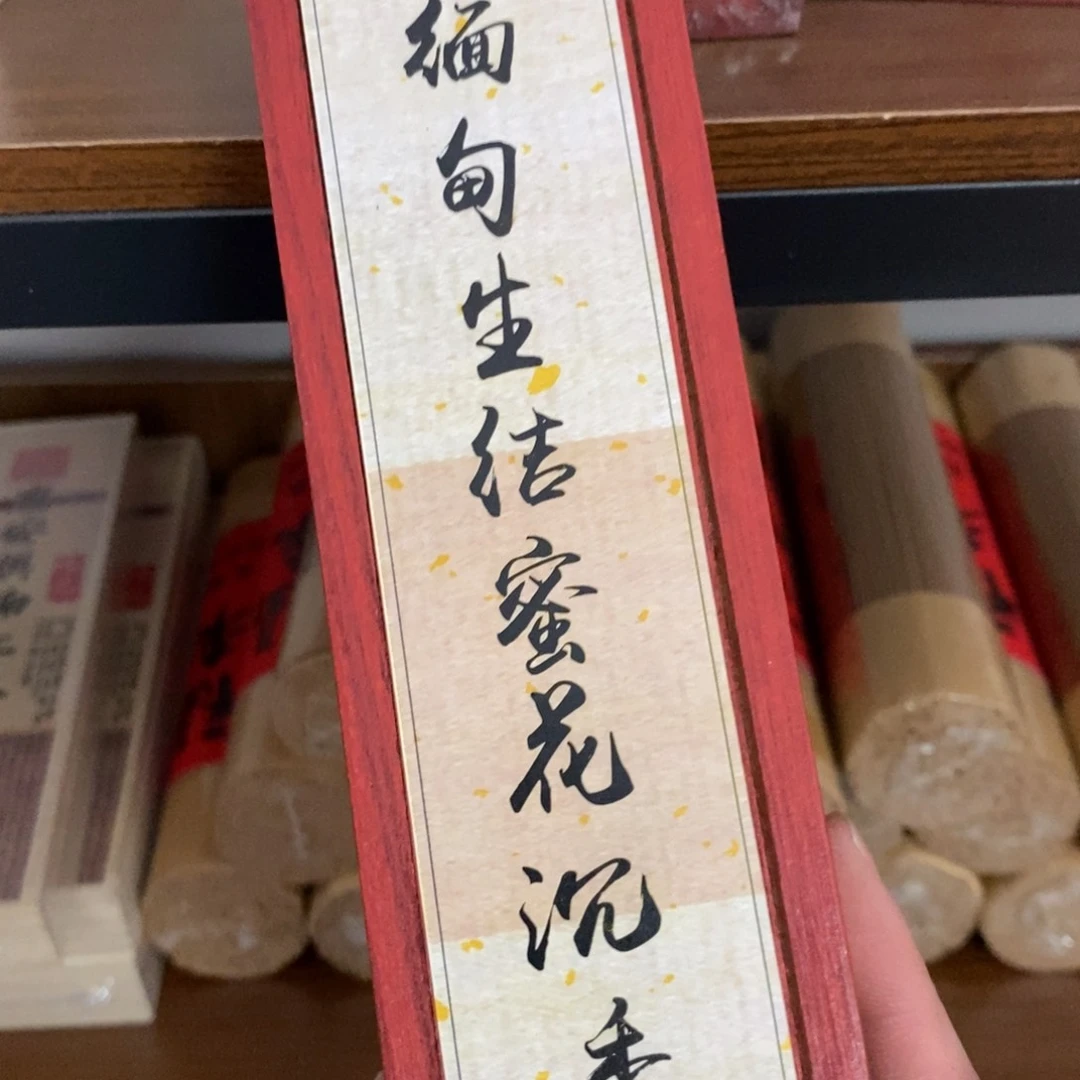 缅甸生结蜜花沉香